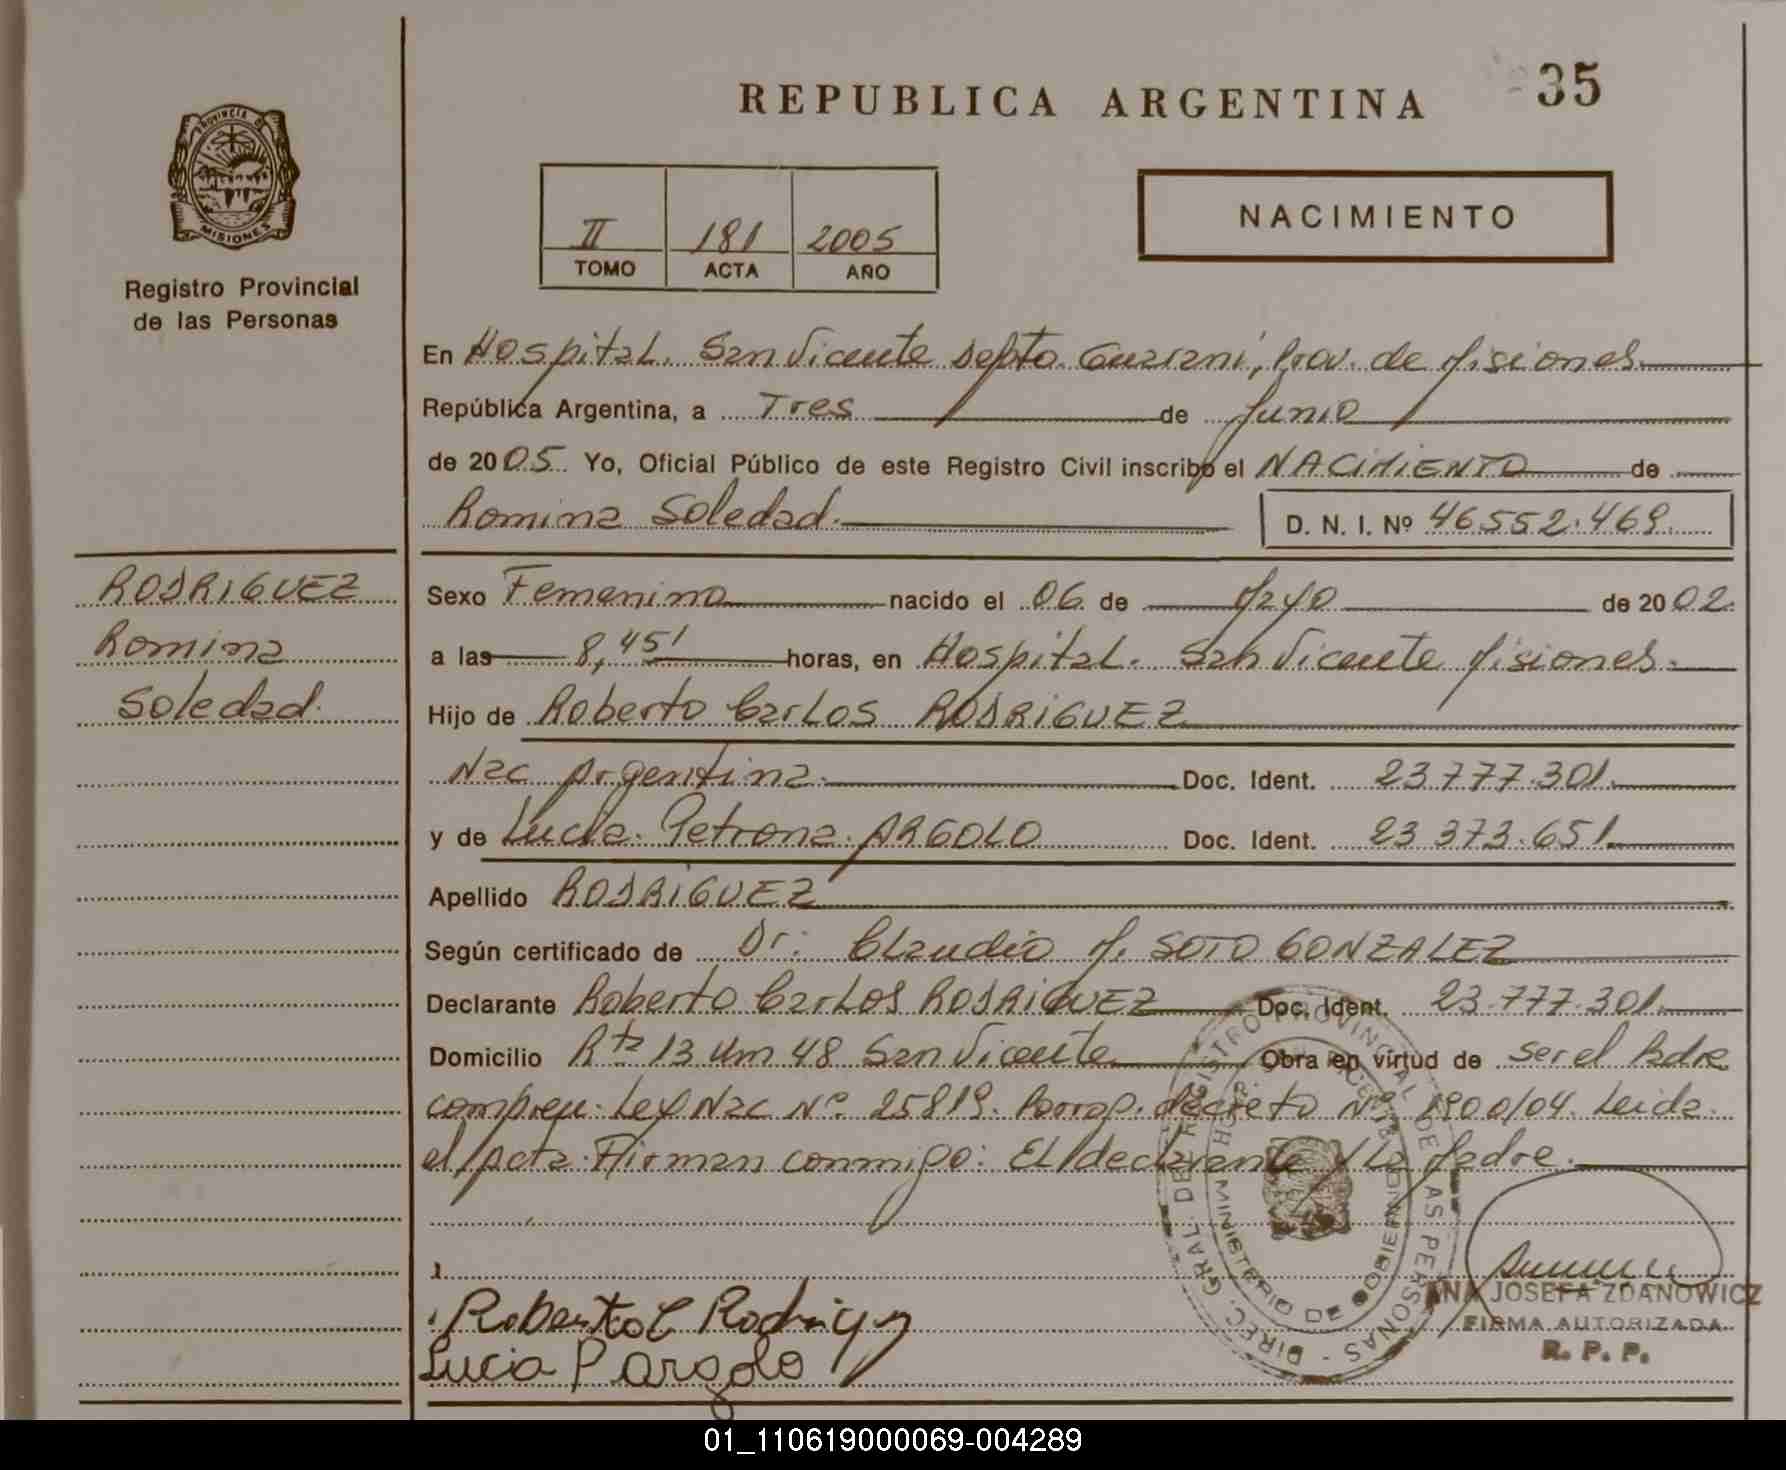 REPUBLICA ARGENTINA
35
PROVINCIA DE
MISIONES
Registro Provincial
de las Personas
II 181 2005
TOMO ACTA AÑO
NACIMIENTO
En Hospital. San Vicente Depto. Guarani, Prov. de Misiones.
República Argentina, a Tres de Junio
de 2005 Yo, Oficial Público de este Registro Civil inscribo el NACIMIENTO de
Romina Soledad.
D. N. I. Nº 46.552.469
RODRIGUEZ
Romina
Soledad.
Sexo Femenino nacido el 06 de Mayo de 2002.
a las 8,45' horas, en Hospital. San Vicente Misiones.
Hijo de Roberto Carlos RODRIGUEZ
Nac Argentina. Doc. Ident. 23.777.301.
y de Lucia. Petrona. ARGOLO Doc. Ident. 23 373.651.
Apellido RODRIGUEZ
Según certificado de Dr: Claudio M. SOTO GONZALEZ
Declarante Roberto Carlos RODRIGUEZ Doc. Ident. 23.777.301.
Domicilio Rta 13 Km 48 San Vicente Obra en virtud de ser el Padre
compren. Ley Nac Nº 25819. Prorrog. decreto Nº 1900/04. Leida
el Acta. Firman conmigo: El declarante y La Madre.
Roberto C Rodriguez
Lucia P argolo
DIREC. GRAL. DEL REGISTRO PROVINCIAL DE LAS PERSONAS
MINISTERIO DE GOBIERNO
ANA JOSEFA ZDANOWICZ
FIRMA AUTORIZADA
R. P. P.
01_110619000069-004289